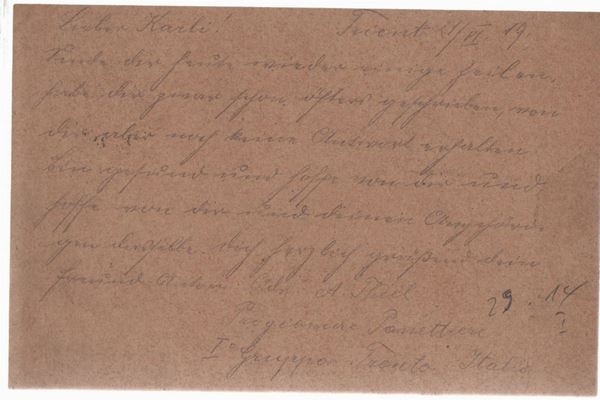 Lieber Karli! Trient 21/VI 19.
Sende dir heute wieder einige Zeilen,
habe dir zwar schon öfters geschrieben, von
dir aber noch keine Antwort erhalten
bin gesund und hoffe von dir und
hoffe von dir und deinen Angehöri-
gen dasselbe. Dich herzlich grüßend dein
Freund Anton Adr. A. Theil
29. 14
I
Prigioniere Panettiere
I° Gruppo Trento Italia